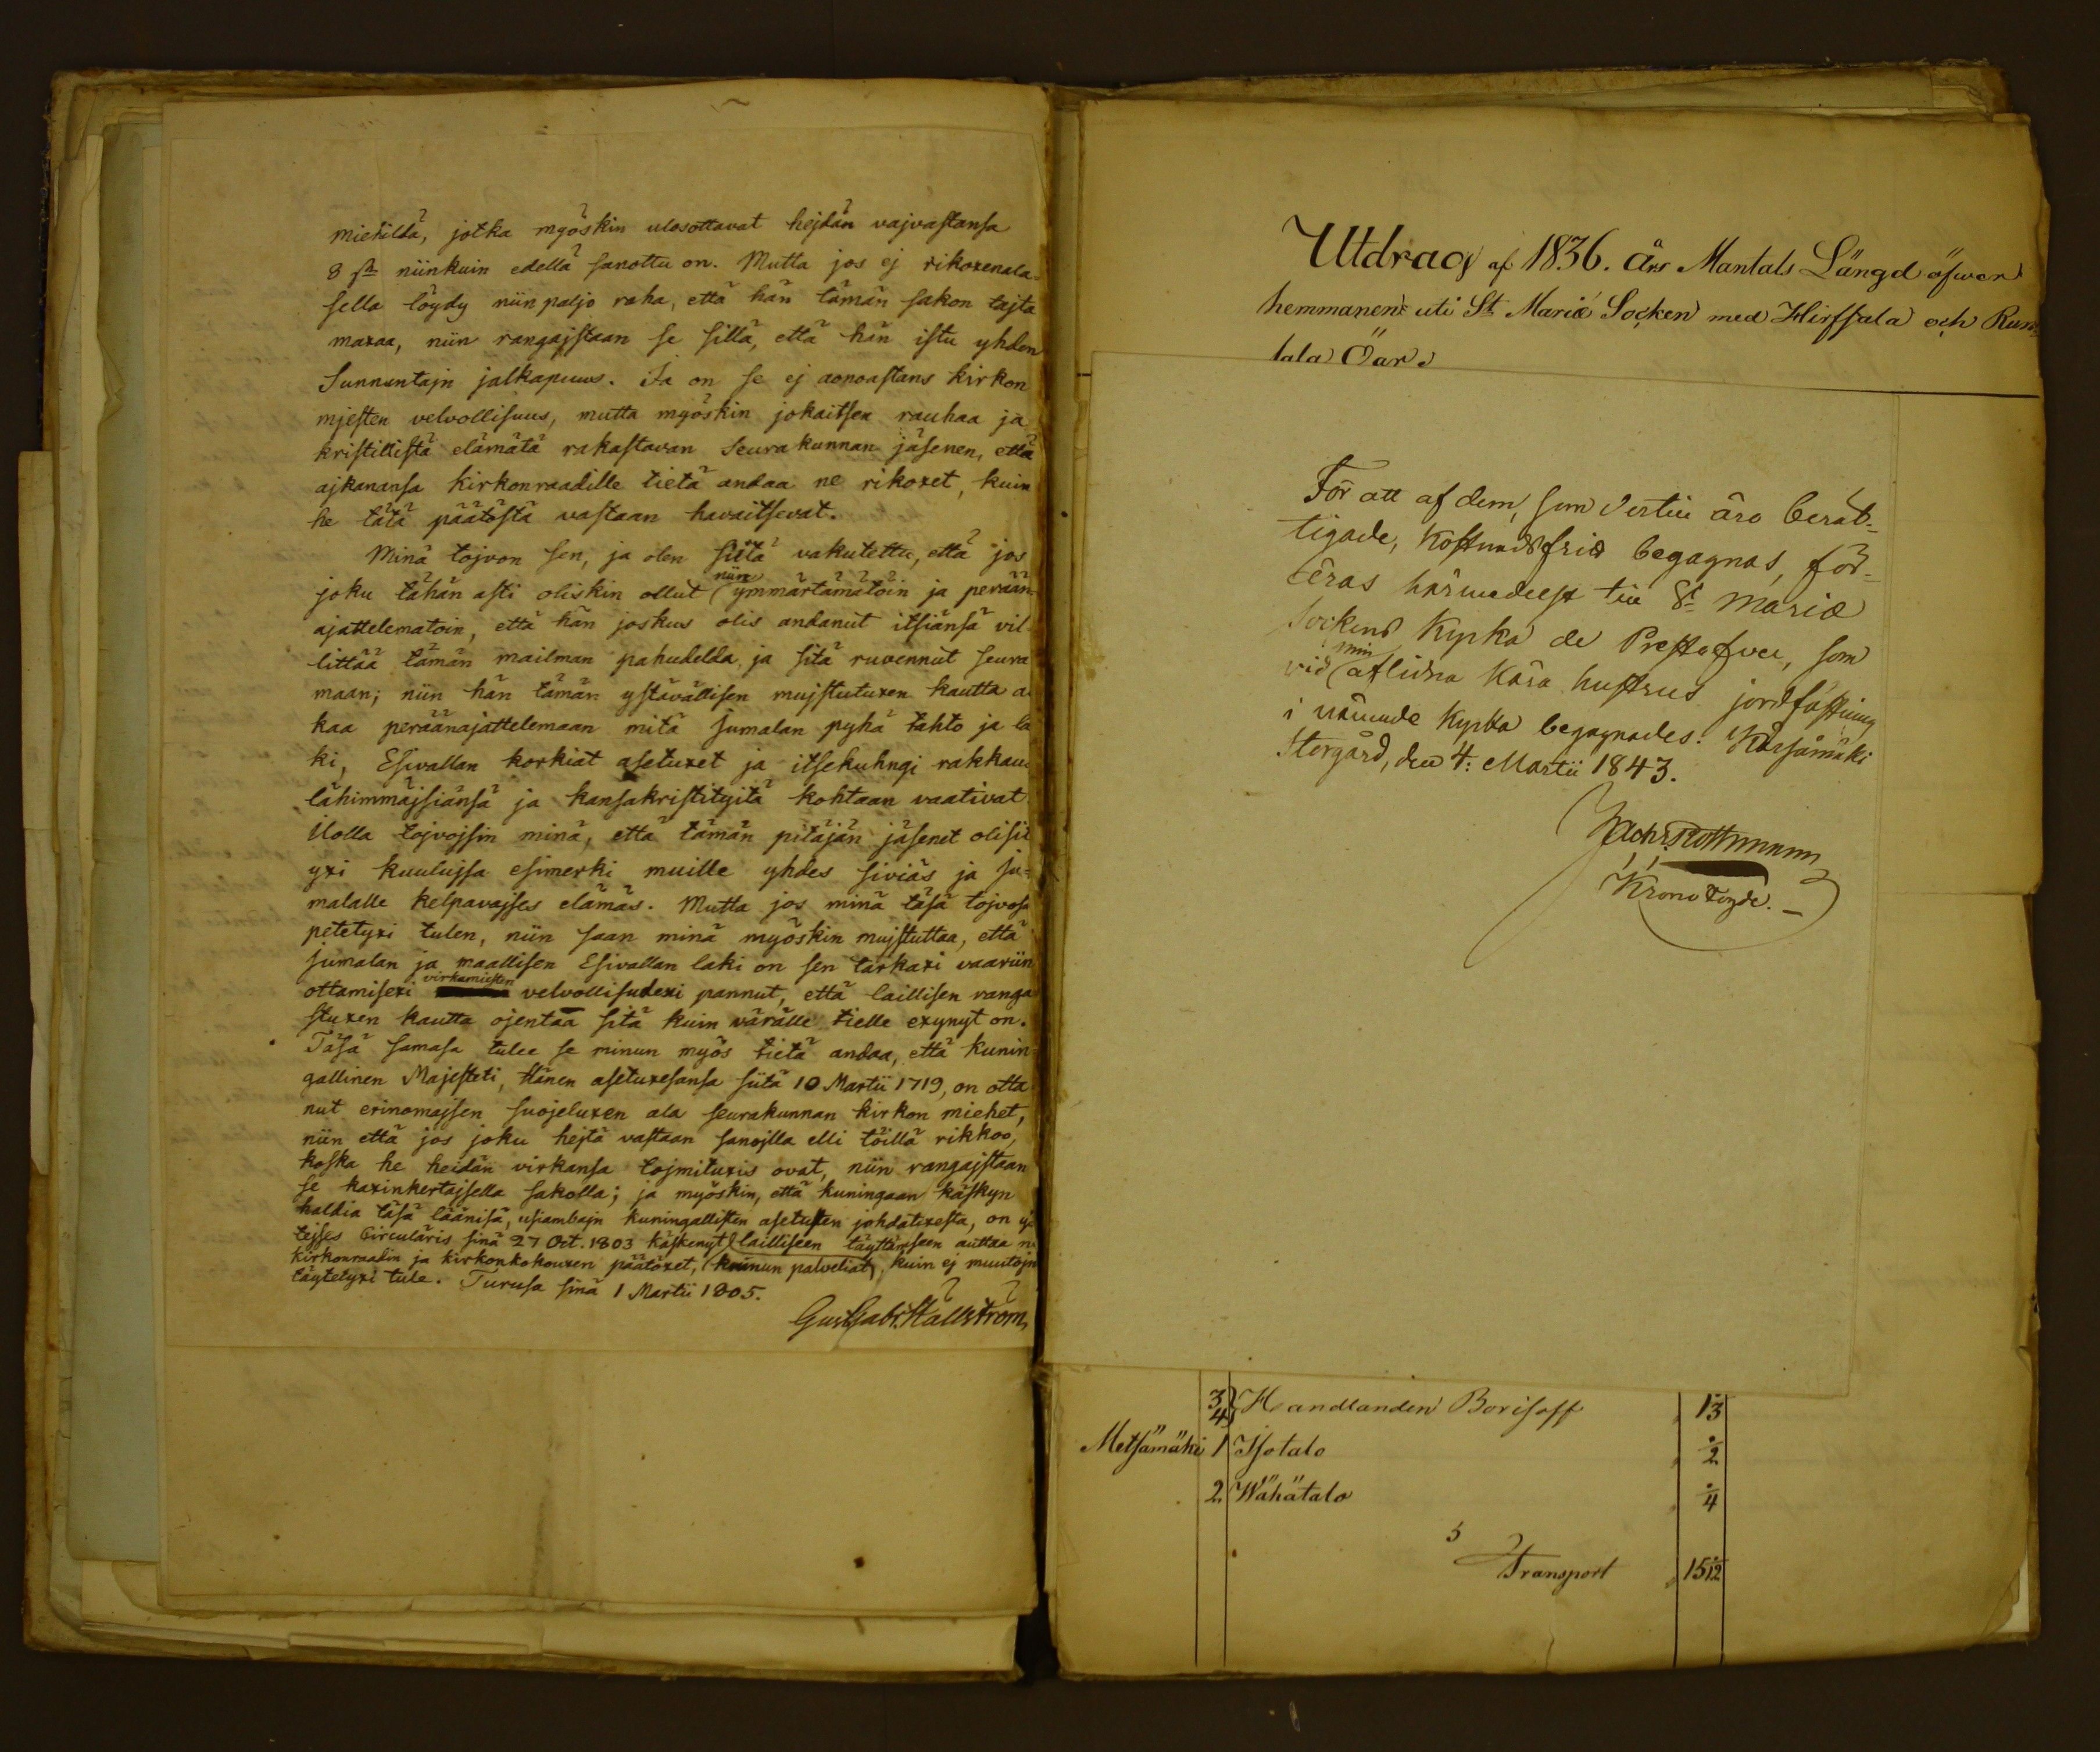 miehildä, jotka myöskin ulosottavat hejdän vajvastansa
8 ß niinkuin edellä sanottu on. Mutta jos ej rikoxenala-
sella löydy niin paljo raha, että hän tämän sakon tajta
maxaa, niin rangajstaan se sillä, että hän istu yhden
Sunnuntajn jalkapuus. Ja on se ej aonoastans kirkon
mjesten velvollisuus, mutta myöskin jokaitsen rauhaa ja
kristillistä elämätä rakastavan Seurakunnan jäsenen, että
ajkanansa kirkonraadille tietä andaa ne rikoxet, kuin
he tätä päätöstä vastaan havaitsevat.
Minä tojvon sen, ja olen siitä vakutettu, että jos
joku tähän asti oliskin ollut niin ymmärtämätöin ja perään-
ajattelematoin, että hän joskus olis andanut itsiänsä vil-
littää tämän mailman pahudelda, ja sitä ruvennut seura
maan; niin hän tämän ystävällisen mujstutuxen kautta al
kaa peräänajattelemaan mitä Jumalan pyhä tahto ja la
ki, Esivallan korkiat asetuxet ja itsekuhngi rakkaus
lähimmäjsiänsä ja kansakristityitä kohtaan vaativat.
Ilolla tojvojsin minä, että tämän pitäjän jäsenet olisit
yxi kuulujsa esimerki muille yhdes siviäs ja Ju-
malalle kelpavajses elämäs. Mutta jos minä täsä tojvosa
petetyxi tulen, niin saan minä myöskin mujstuttaa, että
Jumalan ja maallisen Esivallan laki on sen tarkaxi vaariin
ottamisexi virkamiesten velvollisudexi pannut, että laillisen ranga
stuxen kautta ojentaa sitä kuin värälle tielle exynyt on.
Täsä samasa tulee se minun myös tietä andaa, että Kunin-
gallinen Majesteti, Hänen asetuxesansa siitä 10 Martii 1719, on otta
nut erinomajsen suojeluxen ala seurakunnan kirkon miehet,
niin että jos joku hejtä vastaan sanojlla elli töillä rikkoo,
koska he heidän virkansa tojmituxis ovat, niin rangajstaan
se kaxinkertajsella sakolla; ja myöskin, että kuningaan käskyn
haldia täsä läänisä, usiambajn kuningallisten asetusten johdatuxesta, on yh
tejses Circuläris sinä 27 Oct. 1803 käskenyt lailliseen täyttämiseen auttaa ne
kirkonraadin ja kirkonkokouxen päätöxet, (kruunun palveliat), kuin ej muutojn
täytetyxi tule. Turusa sinä 1 Martii 1805.
Gust Gabr. Hällström
Utdrag af 1836. års Mantals Längd öfwer
hemmanen uti St Mariæ Socken med Hirfsala och Run-
sala Öar
För att af dem, som dertill äro berät-
tigade, kostnadsfritt begagnas, för-
äras härmedelst till St Mariæ
Sockens Kyrka de Prestafvel, som
vid min aflidna kära hustrus jordfästning
i nämnde Kyrka begagnades. Kärsämäki
Storgård, den 4: Martii 1843.
Krono Fogde.
3/4 Handlanden Borisoff 1 3
Metsämäki 1 Isotalo 2
2 Wähätalo 4
Transport 15 12